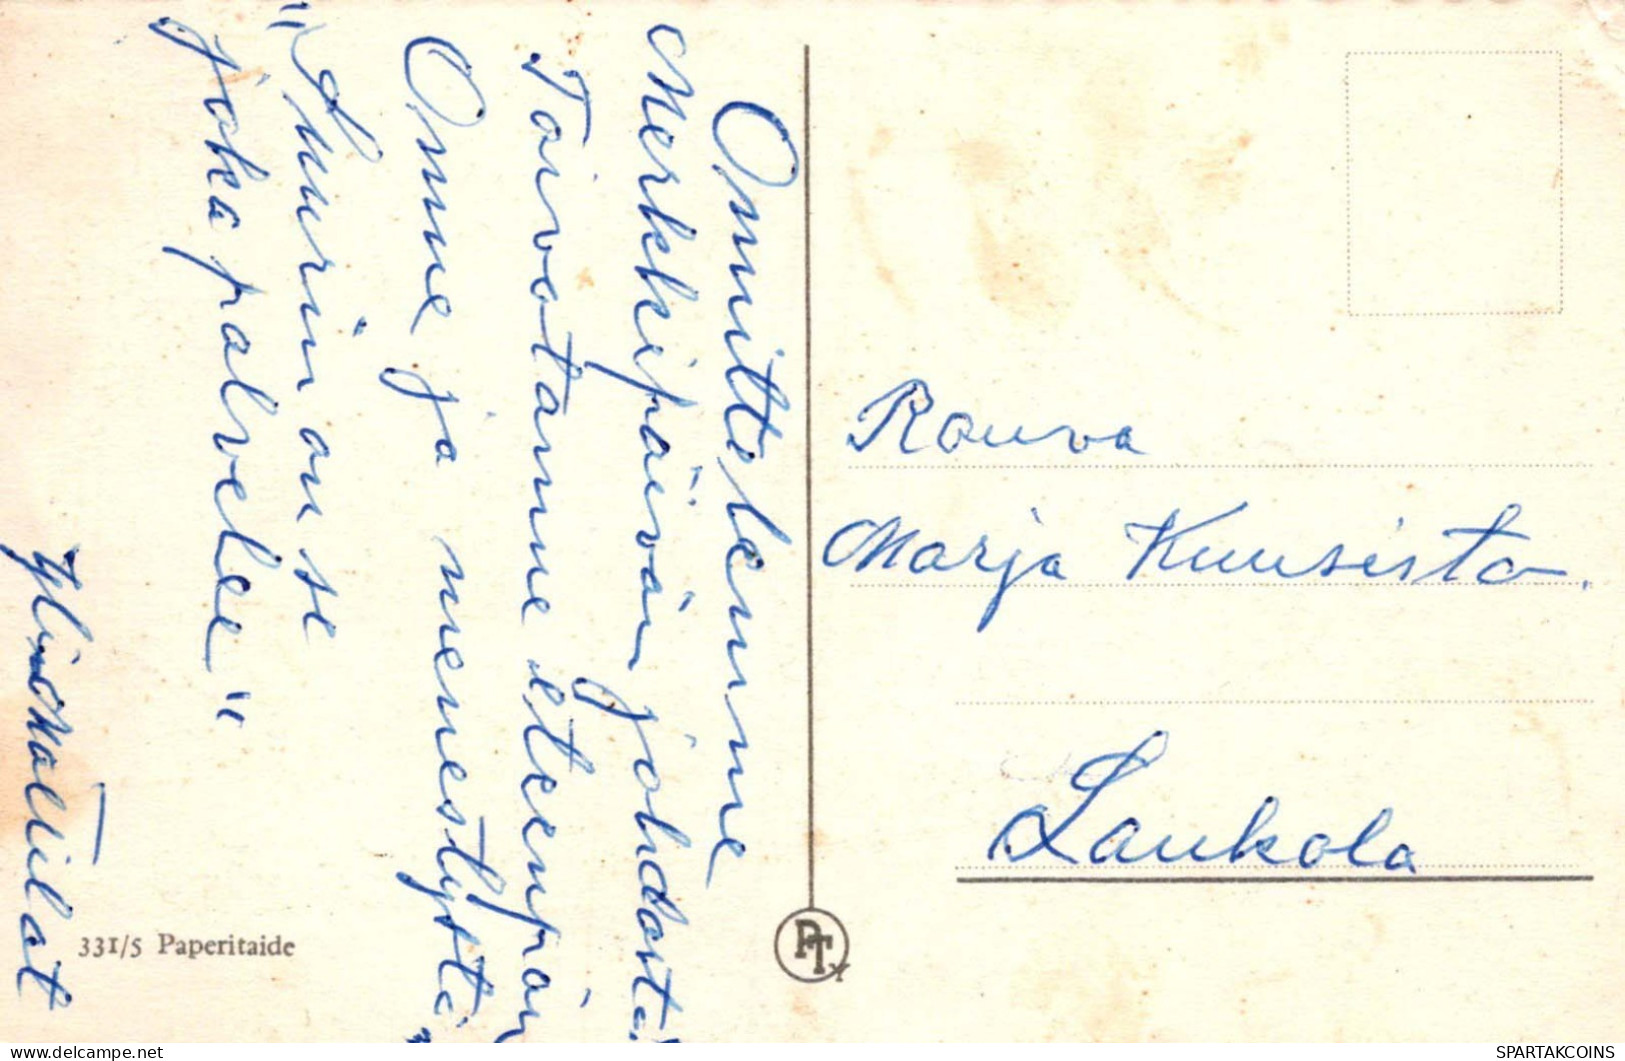 Onnittelemme
Merkkipäivän johdosta!
Toivotamme eteenpäin
Onne ja menestystä
"Suurin on se
joka palvelee"
Rouva
Marja Kuusisto.
Laukola
331/5 Paperitaide
PTy
delcampe.net
SPARTAKCOINS